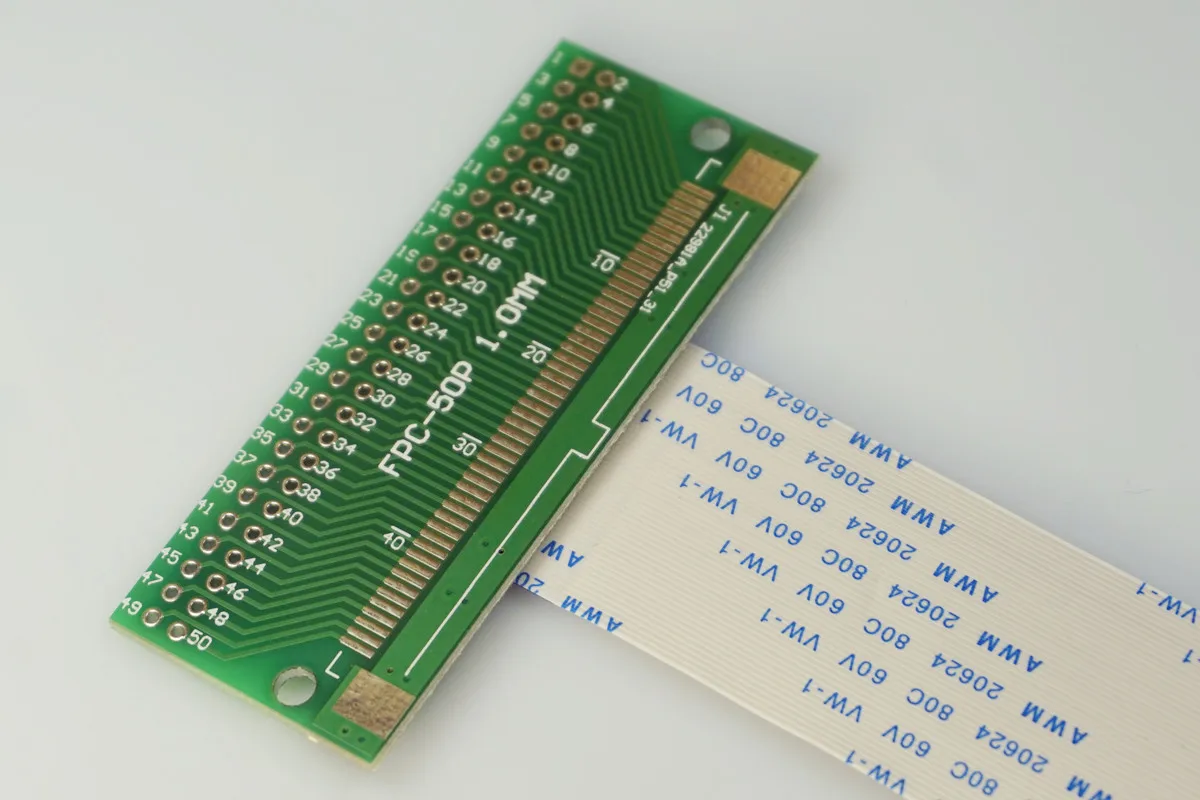 1 2
3 4
5 6
7 8
9 10
11 12
13 14
15 16
17 18
19 20
21 22
23 24
25 26
27 28
29 30
31 32
33 34
35 36
37 38
39 40
41 42
43 44
45 46
47 48
49 50
FPC-50P 1.0MM
10
20
30
40
J1 22981A_P51_31
AWM 20624 80C
AWM 20624 80C 60V VW-1
AWM 20624 80C 60V VW-1
AWM 20624 80C 60V VW-1
AWM 20624 80C 60V VW-1
AWM 20624 80C 60V VW-1
AWM 20624 80C 60V VW-1
AW
AWM 20
VW-1
-1